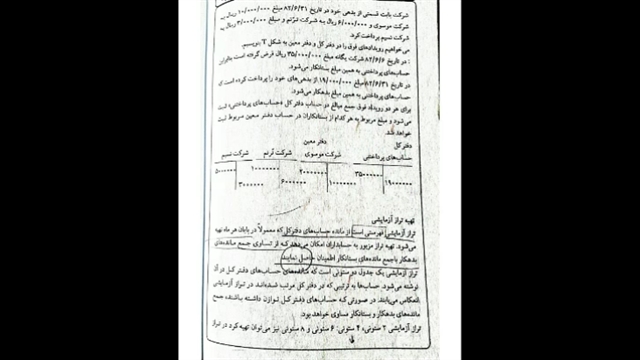 شرکت بابت قسمتی از بدهی خود در تاریخ ۸۲/۶/۳۱ مبلغ ۱۰/۰۰۰/۰۰۰ ریال به
شرکت موسوی و ۶/۰۰۰/۰۰۰ ریال به شرکت ترنم و مبلغ ۳/۰۰۰/۰۰۰ ریال به
شرکت نسیم پرداخت کرد.
می‌خواهیم رویدادهای فوق را در دفتر کل و دفتر معین به شکل T بنویسیم.
: در تاریخ ۸۲/۶/۶ شرکت یگانه مبلغ ۳۵/۰۰۰/۰۰۰ ریال قرض گرفته است بنابراین
حساب‌های پرداختنی به همین مبلغ بستانکار می‌شود.
در تاریخ ۸۲/۶/۳۱ مبلغ ۱۹/۰۰۰/۰۰۰ از بدهی‌های خود را پرداخت کرده است
حساب‌های پرداختنی به همین مبلغ بدهکار می‌شود.
برای هر دو رویداد فوق جمع مبالغ در حساب دفتر کل «حساب‌های پرداختنی» ثبت
می‌شود و مبلغ مربوط به هر کدام از بستانکاران در حساب دفتر معین مربوط ثبت
خواهد شد.
دفتر معین
دفتر کل
حساب‌های پرداختنی شرکت موسوی شرکت ترنم شرکت نسیم
۳۵۰۰۰۰۰۰ ۱۰۰۰۰۰۰۰ ۵۰۰۰۰۰۰
۱۹۰۰۰۰۰۰ ۱۰۰۰۰۰۰۰ ۶۰۰۰۰۰۰ ۳۰۰۰۰۰۰
تهیه تراز آزمایشی
تراز آزمایشی فهرستی است از مانده حساب‌های دفتر کل که معمولاً در پایان هر ماه تهیه
می‌شود. تهیه تراز مزبور به حسابداران امکان می‌دهد که از تساوی جمع مانده‌های
بدهکار با جمع مانده‌های بستانکار اطمینان حاصل نمایند
تراز آزمایشی یک جدول دو ستونی است که مانده‌های حساب‌های دفتر کل در آن
نوشته می‌شود. حساب‌ها به ترتیبی که در دفتر کل مرتب شده‌اند در تراز آزمایشی
انعکاس می‌یابند. در صورتی که حساب‌های دفتر کل توازن داشته باشند، جمع
مانده‌های بدهکار و بستانکار مساوی خواهد بود.
تراز آزمایشی ۲ ستونی، ۴ ستونی، ۶ ستونی و ۸ ستونی نیز می‌توان تهیه کرد در تراز